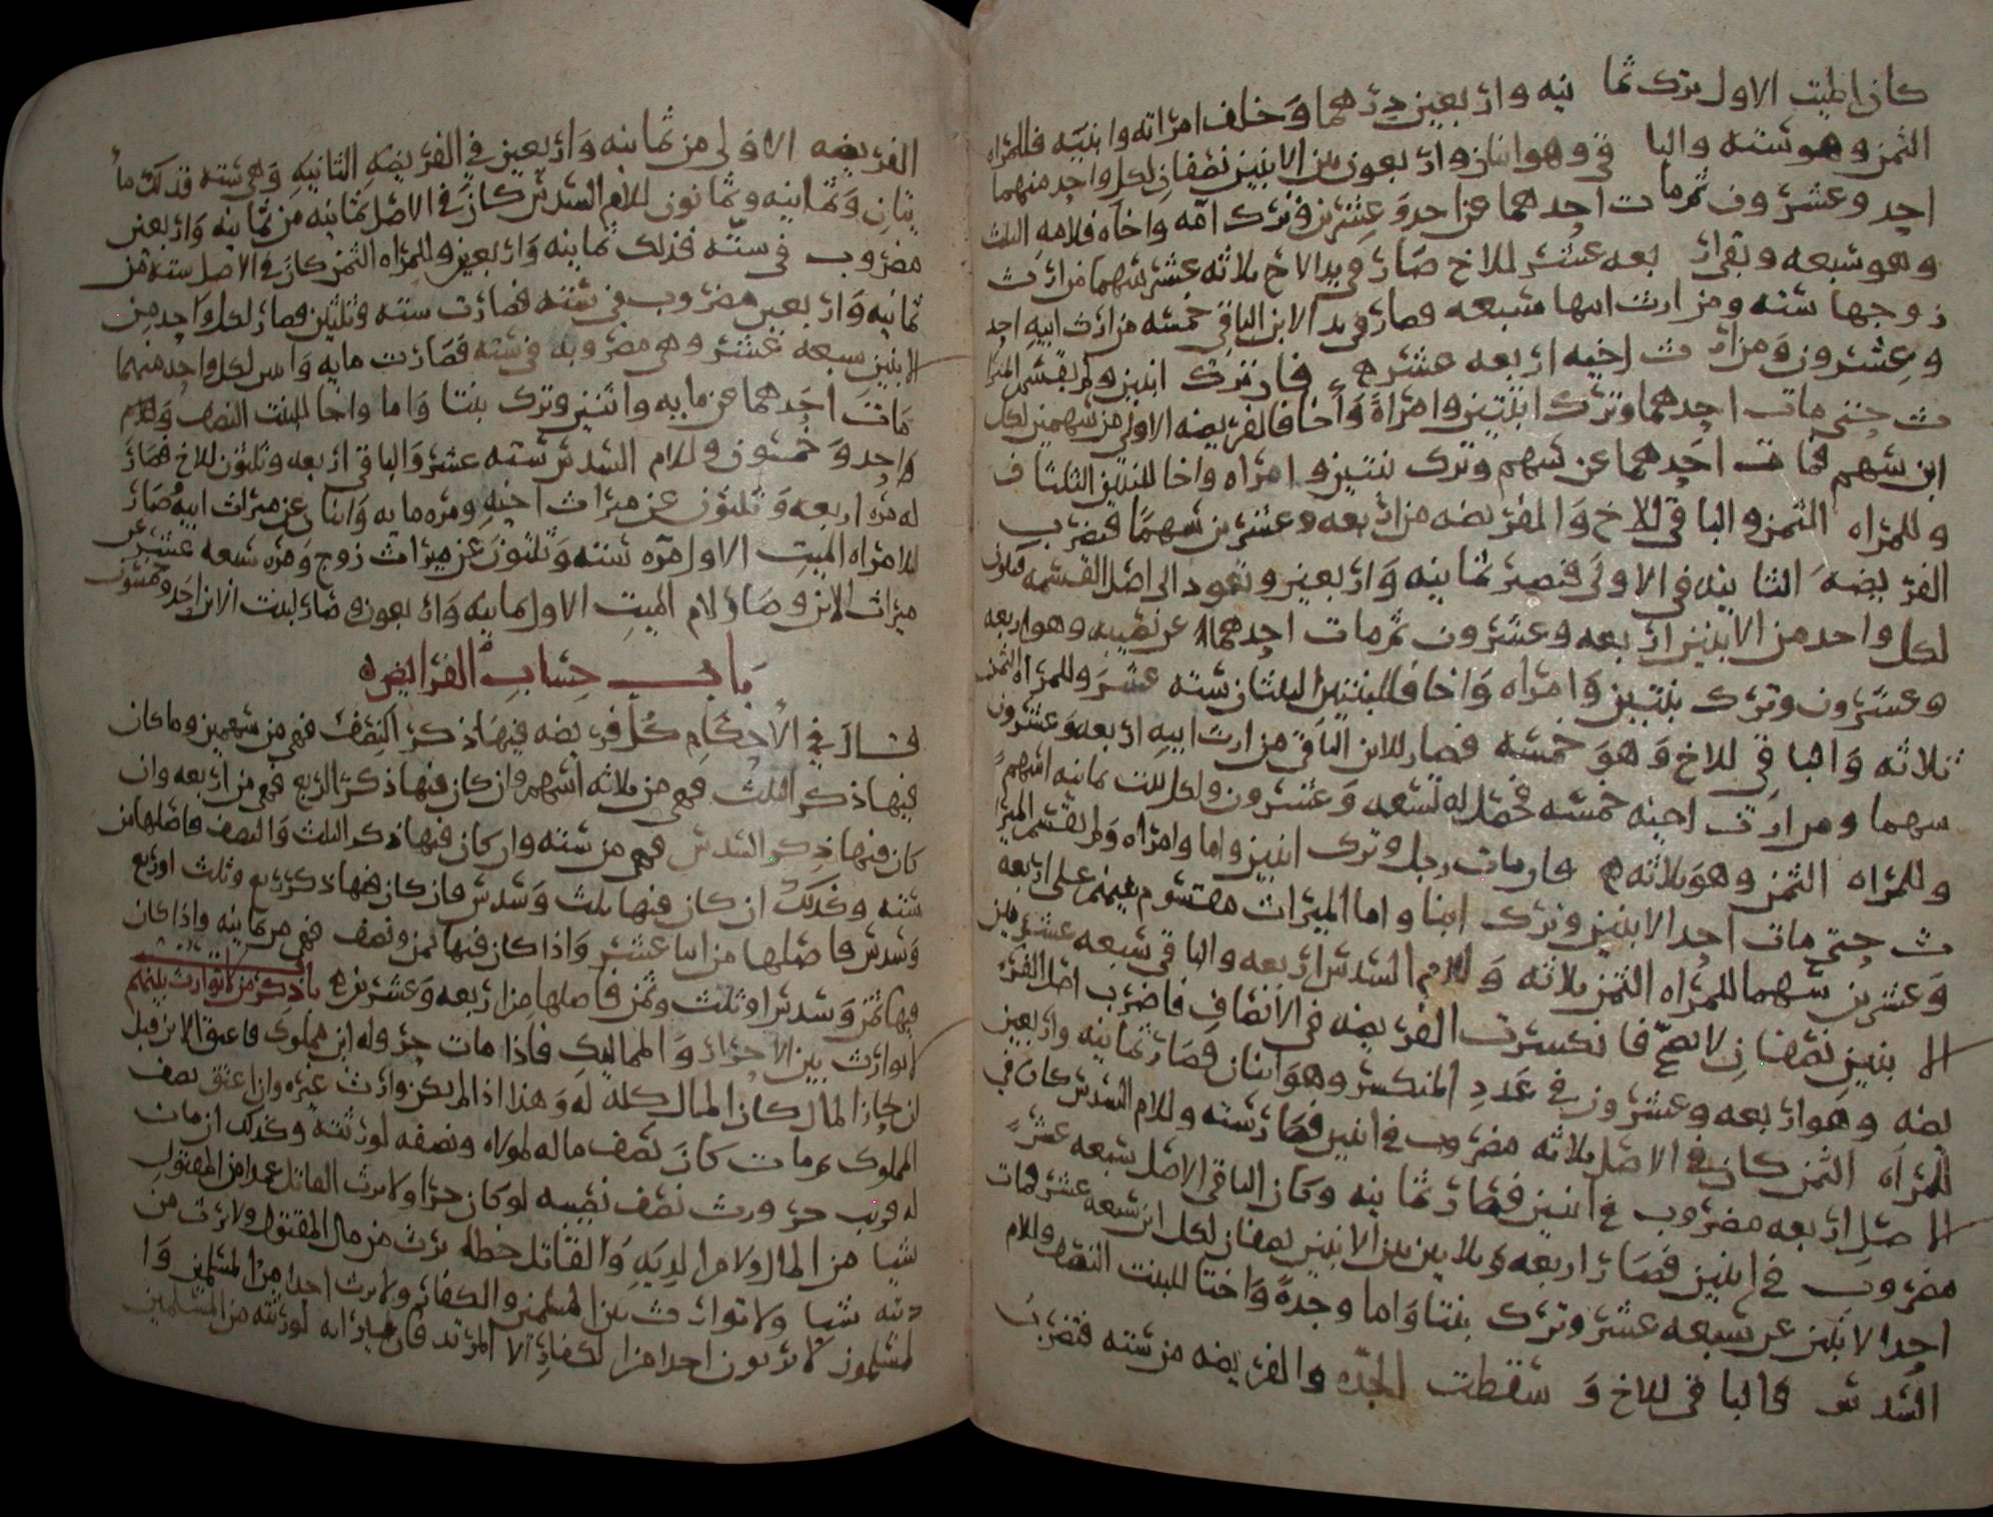 كان الميت الاول ترك ثما نيه واربعين درهما وخلف امراته وابنيه فللمراه
الثمن وهو سته والبا قى وهو اثنان واربعون بين الابنين نصفان لكل واحد منهما
احد وعشرون ثم ما ت احدهما عن احد وعشرين وترك امه واخاه فلامه الثلث
وهو سبعه وبقى ار بعه عشر للاخ صار فى يد الاخ ثلاثه عشر سهما من ارث
زوجها سته ومن ارث ابنها سبعه وصار فى يد الابن الباقى خمسه من ارث ابيه احد
وعشرون ومن ار ث اخيه اربعه عشر فان ترك ابنين ولم يقسم الميرا
ث حتى مات احدهما وترك ابنتين وامراة واخا فالفريضه الاولى من سهمين لكل
ابن سهم فما ت احدهما عن سهم وترك بنتين وامراه واخا للبنتين الثلثان
وللمراه الثمن والباقى للاخ والفريضه من اربعه وعشرين سهما فتضرب
الفر يضه الثا نيه فى الاولى فتصير ثمانيه واربعين وتعود الى اصل القسمه فيكون
لكل واحد من الابنين اربعه وعشرون ثم مات احدهما عن نصيبه وهو اربعه
وعشرون وترك بنتين وامراه واخا فللبنتين الثلثان سته عشر وللمراه الثمن
ثلاثه والباقى للاخ وهو خمسه فصار للابن الباقى من ارث ابيه اربعه وعشرون
سهما ومن ارث اخيه خمسه فحصل له تسعه وعشرون ولكل بنت ثمانيه اسهم
وللمراه الثمن وهو ثلاثه فان مات رجل وترك ابنين واما وامراه ولم يقسم الميرا
ث حتى مات احد الابنين وترك ابنا واما الميراث مقسوم بينهم على اربعه
وعشرين سهما للمراه الثمن ثلاثه وللام السدس اربعه والباقى سبعه عشر بين
الا بنين نصفان لا يصح فانكسرت الفريضه فى الانصاف فاضرب اصل الفر
يضه وهو اربعه وعشرون فى عدد المنكسر وهو اثنان فصار ثمانيه واربعين
للمراه الثمن كان فى الاصل ثلاثه مضروب فى اثنين فصار سته وللام السدس كان فى
الا صل اربعه مضروب فى اثنين فصار ثمانيه وكان الباقى الاصل سبعه عشر
مضروب فى اثنين فصار اربعه وثلاثين بين الابنين نصفان لكل ابن سبعه عشر فمات
احد الابنين عن سبعه عشر وترك بنتا واما وجدة واختا للبنت النصف وللام
السد س فالباقى للاخ و سقطت الجده والفريضه من سته فتضرب
الفريضه الاولى من ثمانيه واربعين فى الفريضه الثانيه وهى سته فذلك ما
يتان وثمانيه وثمانون للام السدس كان فى الاصل ثمانيه من ثمانيه واربعين
مضروب فى سته فذلك ثمانيه واربعين وللمراه الثمن كان فى الاصل سته من
ثمانيه واربعين مضروب فى سته فصارت سته وثلثين وصار لكل واحد من
الابنين سبعه عشر وهى مضروبه فى سته فصارت مايه واثنين لكل واحد منهما
مات احدهما عن مايه واثنين وترك بنتا واما واخا للبنت النصف
واحد وخمسون وللام السدس سبعه عشر والباقى اربعه وثلثون للاخ فصار
له مره اربعه وثلثون عن ميراث اخيه ومره مايه واثنان عن ميراث ابيه وصار
للامراه الميت الاول مره سته وثلثون عن ميراث زوج ومره سبعه عشر عن
ميراث الابن وصار لام الميت الاول ثمانيه واربعون وصار لبنت الابن احد وخمسون
باب حساب الفرايض
قال فى الاحكام كل فريضه فيها ذكر النصف فهى من سهمين وما كان
فيها ذكر الثلث فهى من ثلاثه اسهم وان كان فيها ذكر الربع فهى من اربعه وان
كان فيها ذكر السدس فهى من سته وان كان فيها ذكر الثلث والنصف فاصلها من
سته وكذلك ان كان فيها ثلث وسدس فان كان فيها ذكر ربع وثلث او ربع
وسدس فاصلها من اثنا عشر واذا كان فيها ثمن ونصف فهى من ثمانيه واذا كان
فيها ثمن وسدس او ثلث وثمن فاصلها من اربعه وعشرين باب ذكر من لا توارث بينهم
لا توارث بين الاحرار والمماليك فاذا مات حر وله ابن مملوك فاعتق الابن قبل
ان يحاز المال كان المال كله له وهذا اذا لم يكن وارث غيره وان اعتق نصف
المملوك ثم مات كان نصف ماله لمولاه ونصفه لورثته وكذلك ان مات
له قريب حر ورث نصف نصيبه لو كان حرا ولا يرث القاتل عمدا من المقتول
شيا من المال ولا من الديه والقاتل خطا يرث من مال المقتول ولا يرث من
ديته شيا ولا توارث بين المسلمين والكفار ولا يرث احدا من المسلمين وا
لمسلمون لا يرثون احدا من الكفار الا المرتد فان ميراثه لورثته من المسلمين